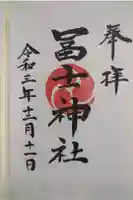 奉拝
冨士神社
令和三年十二月十一日